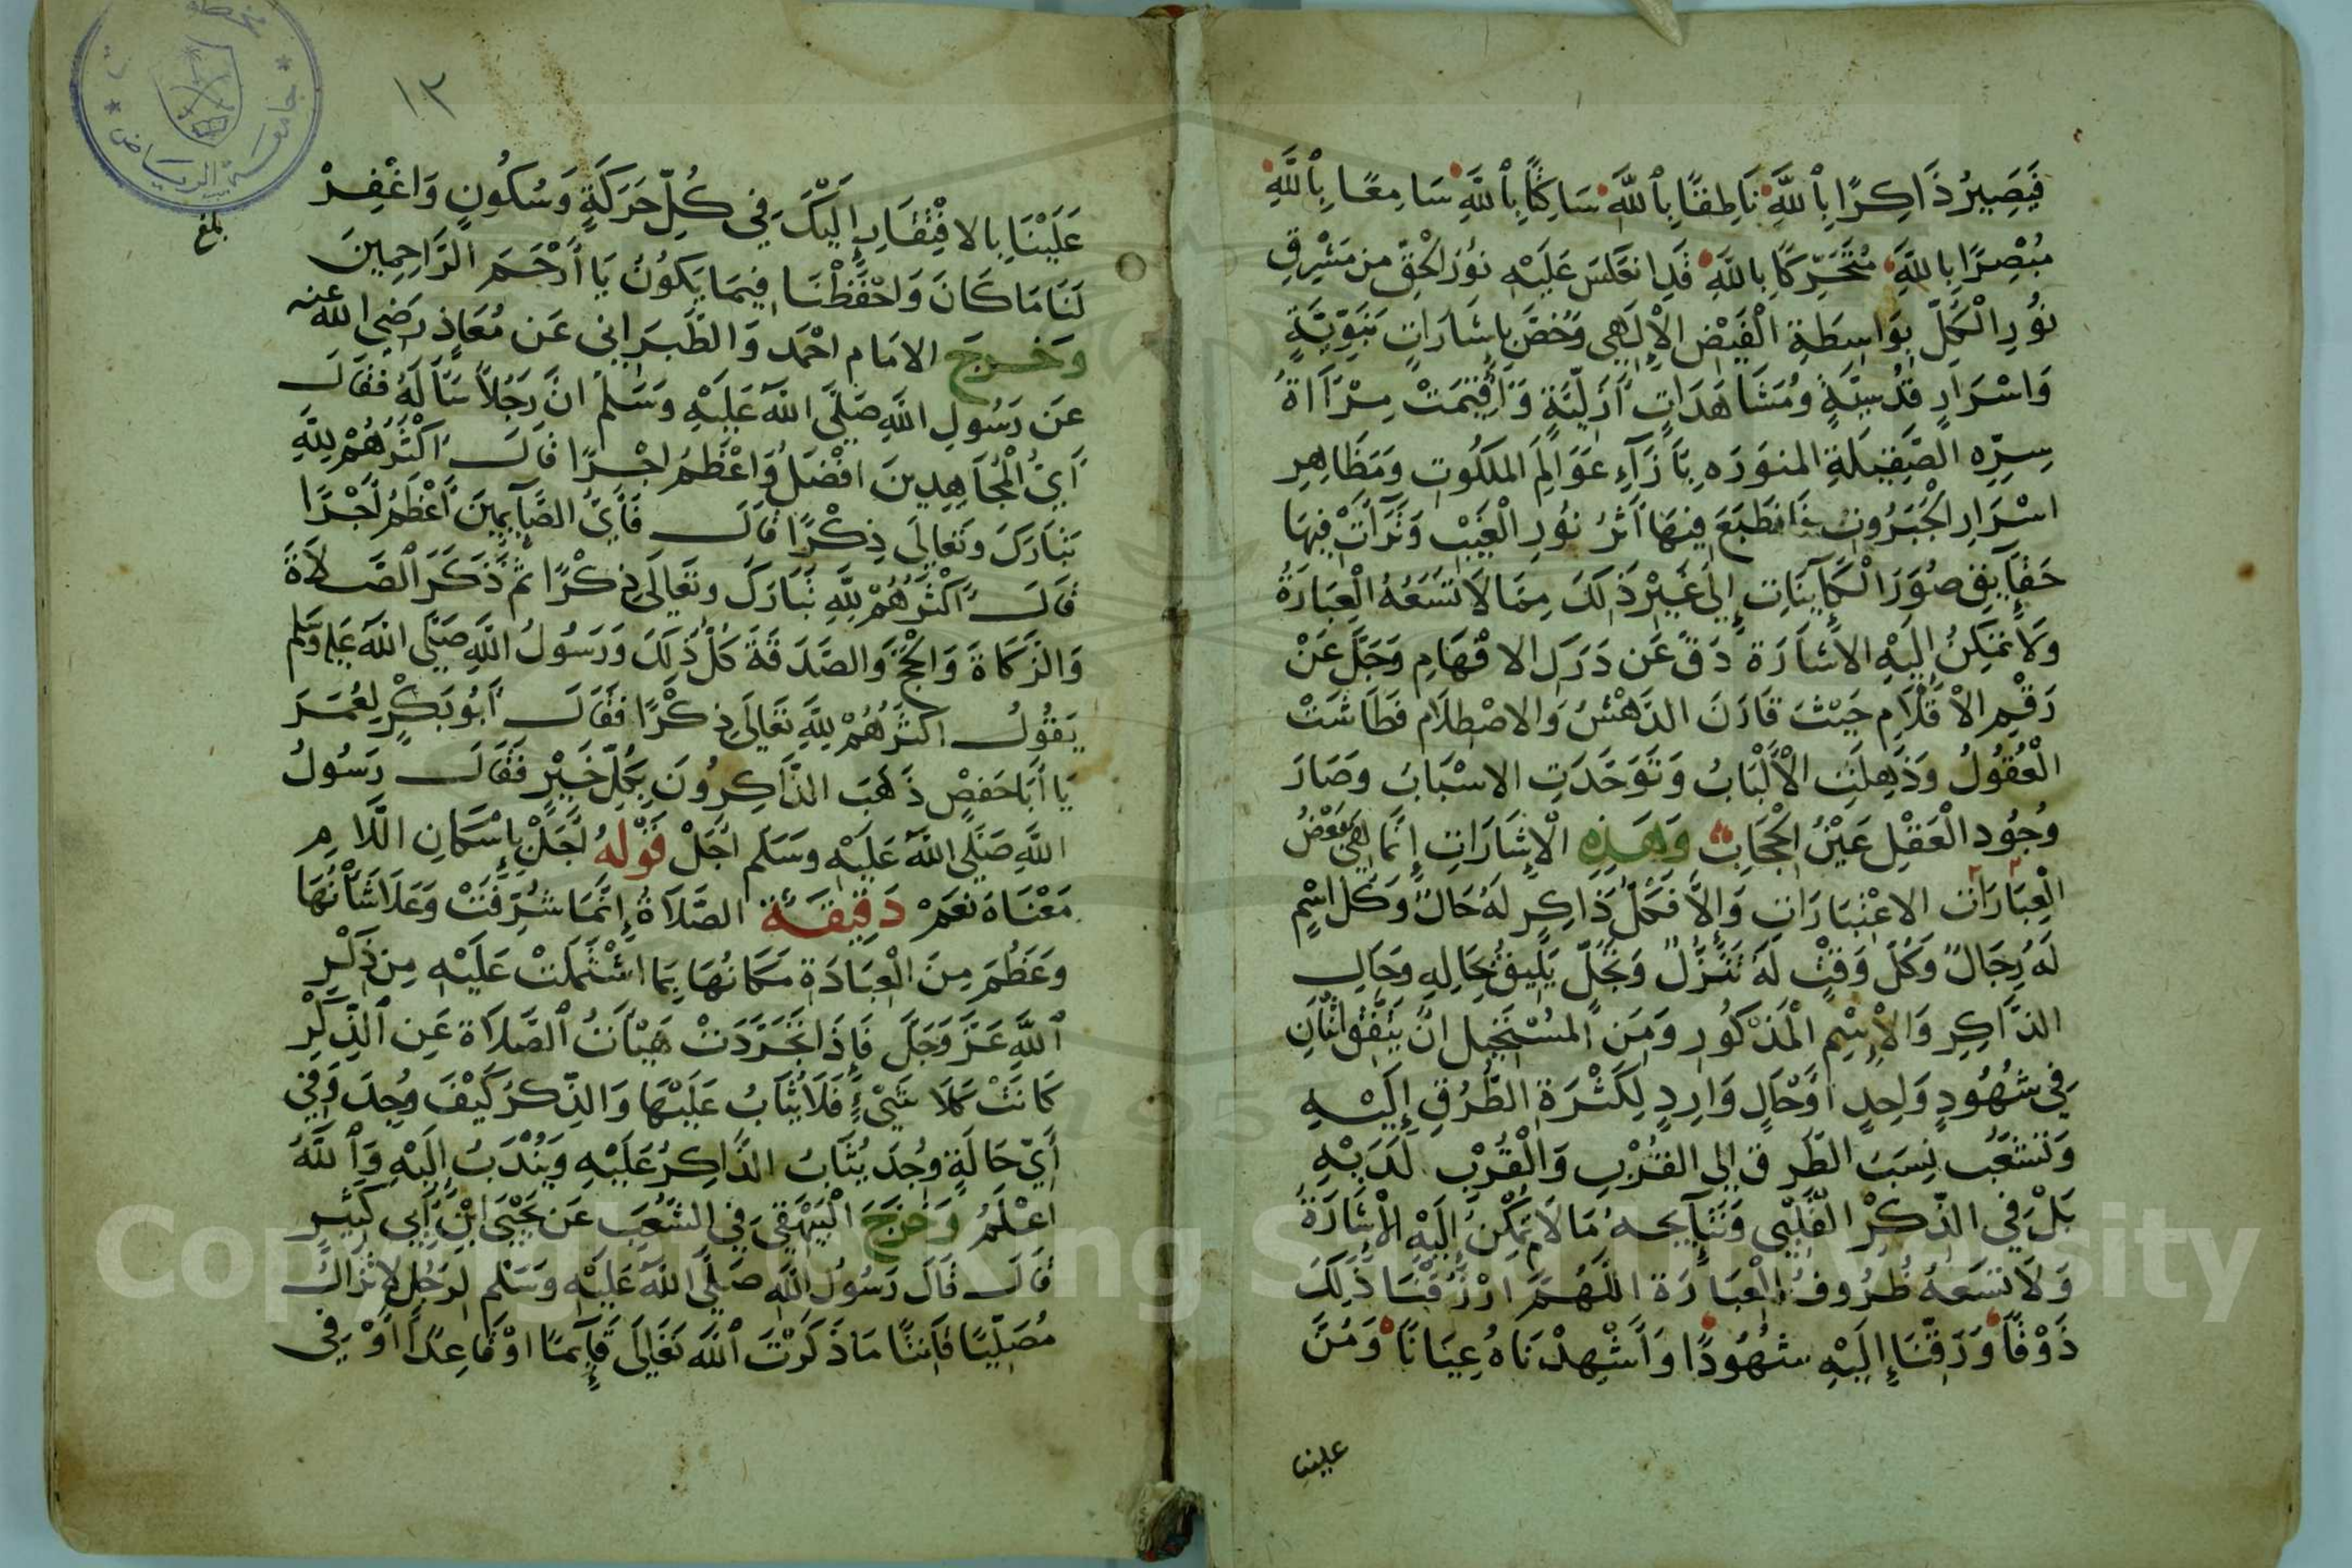 فَيَصِيرُ ذَاكِرًا بِاللَّهِ نَاطِقًا بِاللَّهِ سَاكِتًا بِاللَّهِ سَامِعًا بِاللَّهِ
مُبْصِرًا بِاللَّهِ مُتَحَرِّكًا بِاللَّهِ قَدِ انعَكَسَ عَلَيْهِ نُورُ الْحَقِّ مِن مَشْرِقِ
نُورِ الْكُلِّ بِوَاسِطَةِ الْفَيْضِ الْإِلَهِي وَخُصَّ بِإِشَارَاتٍ نَبَوِيَّةٍ
وَاسْرَارٍ قُدْسِيَّةٍ وَمُشَاهَدَاتٍ أَزَلِيَّةٍ وَأُقِيمَتْ مِرْآةُ
سِرِّهِ الصَّقِيلَةِ المنوَرَه بِأَزَآءِ عَوَالِمَ المَلَكُوتِ وَمَظَاهِرِ
اسْرَارِ الْجَبَرُوتِ فَانطَبَعَ فِيهَا أَثَرُ نُورِ الْغَيْبِ وَتَرَآتْ فِيهَا
حَقَآيِقِ صُوَرَ الْكَآيِنَاتِ إِلَى غَيْرِ ذَلِكَ مِمَّا لَا تَسَعُهُ الْعِبَارَةُ
وَلَا تمكِنُ إِلَيْهِ الاشَارَة دَقَّ عَن دَرَكِ الافْهَامِ وَجَلَّ عَنْ
رَقْمِ الْأَقْلَامِ حَيْثَ قَارَنَ الدَهْشُ وَالاصْطِلَام فَطَاشَتْ
الْعُقُولُ وَذَهِلَتِ الْأَلْبَابُ وَتَوَحَّدَتِ الاسْبَابُ وَصَارَ
وُجُودِ الْعَقْلِ عَيْنُ الْحِجَابِ وَهَذِهِ الْإِشَارَاتِ إِنَّمَا هِيَ بَعْضُ
الْعِبَارَاتِ الاعْتِبَارَاتِ وَإِلَّا فَكُلُّ ذَاكِرٍ لَهُ حَالٌ وَكُلّ اسْمٍ
لَهُ رِجَالٌ وَكُلّ وَقْتٍ لَهُ تَنَزُّلٌ وَتَجَلّ يَلِيقُ بِحَالِهِ وَحَالِ
الذَّاكِرِ وَالْإِسْمِ الْمَذْكُورِ وَمِنَ المُسْتَحِيل انْ يَتَّفِقَ اثْنَانِ
فِي شُهُودٍ وَاحِدٍ اوْحَالٍ وَارِدٍ لِكَثْرَةِ الطُّرُقِ إِلَيْهِ
وَتَشَعُّب نِسَبَ الطّرق الى القُرْبِ وَالْقُرْبِ لَدَيْهِ
بَلْ فِي الذِّكْرِ الْقَلْبِي وَنَتَآيجه مَا لَا يمكِنُ إِلَيْهِ الْإِشَارَةُ
وَلَا تَسَعهُ ظُرُوفُ الْعِبَارَة اللَّهُمَّ ارْزُقْنَا ذَلِكَ
ذَوْقًا وَرَقِّنَا إِلَيْهِ شُهُودًا وَأَشْهِدْنَاهُ عِيَانًا وَمُنَّ
علينا
١٢
عَلَيْنَا بِالافْتِقَارِ إِلَيْكَ فِي كُلّ حَرَكَةٍ وَسُكُونٍ وَاغْفِرْ
لَنَا مَا كَانَ وَاحْفَظْنَا فِيمَا يَكُونُ يَا أَرْحَمَ الرَّاحِمِينَ
بلغ
وَخَرَجَ الامَام احْمَد وَالطَّبَرَانِى عَن مُعَاذٍ رَضِي اللهُ عنه
عَن رَسُولِ اللَّهِ صَلَّى اللَّهُ عَلَيْهِ وَسَلَّم انَّ رَجُلاً سَأَلَهُ فَقَالَ
أَيّ الْمُجَاهِدِينَ افْضَلُ وَاعْظَمُ اجْرًا قَالَ أَكْثَرُهُمْ لِلَّهِ
تَبَارَكَ وَتَعَالَى ذِكْرًا قَالَ فَأَيّ الصَّآيِمِينَ أَعْظَمُ أَجْرًا
قَالَ أَكْثَرُهُمْ لِلَّهِ تَبَارَكَ وَتَعَالَى ذِكْرًا ثُمَّ ذَكَرَ الصَّلاَةَ
وَالزَّكَاةَ وَالْحَجَّ وَالصَّدَقَةَ كُلّ ذَلِكَ وَرَسُولُ اللَّهِ صَلَّى اللَّهُ عَلَيه وَسَلم
يَقُولُ اكْثَرُهُمْ لِلَّهِ تَعَالَى ذِكْرًا فَقَالَ أَبُو بَكْرٍ لِعُمَرَ
يَا أَبَا حَفْصٍ ذَهَبَ الذَّاكِرُونَ بِكُلِّ خَيْرٍ فَقَالَ رَسُولُ
اللَّهِ صَلَّى اللَّهُ عَلَيْهِ وَسَلَّم أَجَلْ قَوْلُهُ أَجَلْ بِإِسْكَانِ اللَّامِ
مَعْنَاهُ نَعَمْ دَقِيقَة الصَّلَاةُ إِنَّمَا شُرِّفَتْ وَعَلَا شَأْنُهَا
وَعَظُمَ مِنَ الْعِبَادَةِ مَكَانُهَا بِمَا اشْتَمَلَتْ عَلَيْهِ مِن ذِكْرِ
اللَّهِ عَزَّ وَجَلَّ فَإِذَا تَجَرَّدَتْ هَيْأَتُ الصَّلَاةِ عَنِ الذِّكْرِ
كَانَتْ كَلَا شَيْءٍ فَلَا يُثَابُ عَلَيْهَا وَالذِّكرُ كَيْفَ وُجِدَ وَفِي
أَيّ حَالَةٍ وُجِدَ يُثَابُ الذَّاكِرُ عَلَيْهِ وَيُنْدَبُ إِلَيْهِ وَاللَّهُ
اعْلَمُ وَخَرَجَ الْبَيْهَقِيّ فِي الشُّعَبِ عَن يَحْيَى ابْن أَبِي كَثِيرٍ
قَالَ قَالَ رَسُولُ اللَّهِ صَلَّى اللَّهُ عَلَيْهِ وَسَلَّم لِرَجُلٍ لا تَزَالُ
مُصَلِّيًا قَانِتًا مَا ذَكَرْتَ اللَّهَ تَعَالَى قَآيِمًا اوْ قَاعِدًا أَوْ فِي
جامعة الرياض
Copyright © King Saud University
1957